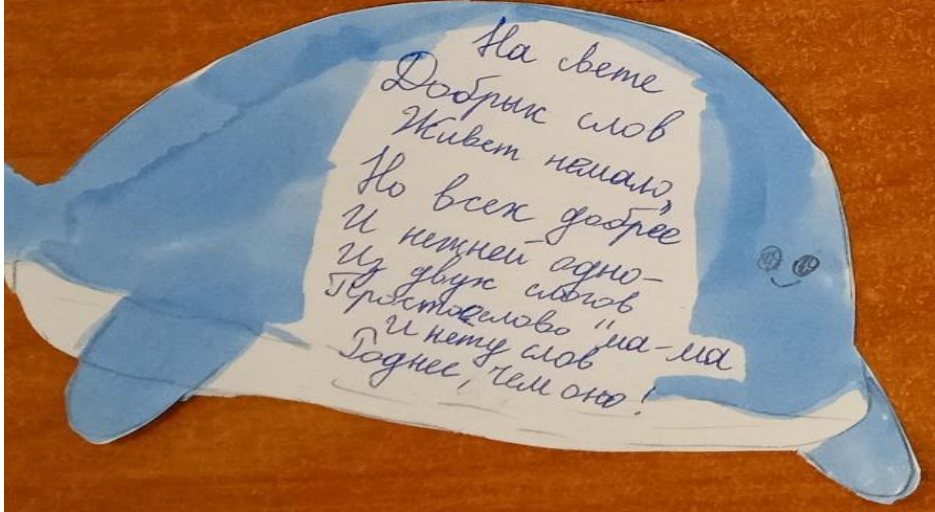 На свете
Добрых слов
Живет немало,
Но всех добрее
И нежней одно-
Из двух слогов
Простое слово "ма-ма"
И нету слов
Роднее, чем оно!